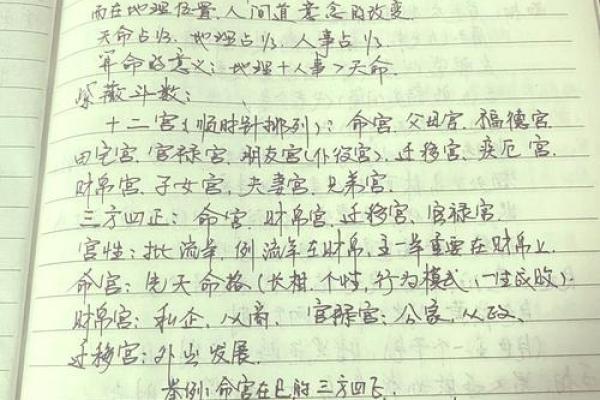 而在地理位置、人间道意念的改变.
天命占⅓、地理占⅓、人事占⅓.
算命的意义：地理+人事>天命.
紫薇斗数：
十二宫（顺时针排列）：命宫、父母宫、福德宫
田宅宫、官禄宫、朋友宫（仆役宫）、迁移宫、疾厄宫
财帛宫、子女宫、夫妻宫、兄弟宫.
三方四正：命宫、财帛宫、迁移宫、官禄宫.
宫性：批流年，例流年在财帛，主一年重要在财帛上.
命宫：先天命格（长相、个性，行为模式，一生成败）.
财帛宫：私企、从商、官禄宫：公家、从政、
迁移宫：外出发展.
举例：命宫在巳的三方四正.